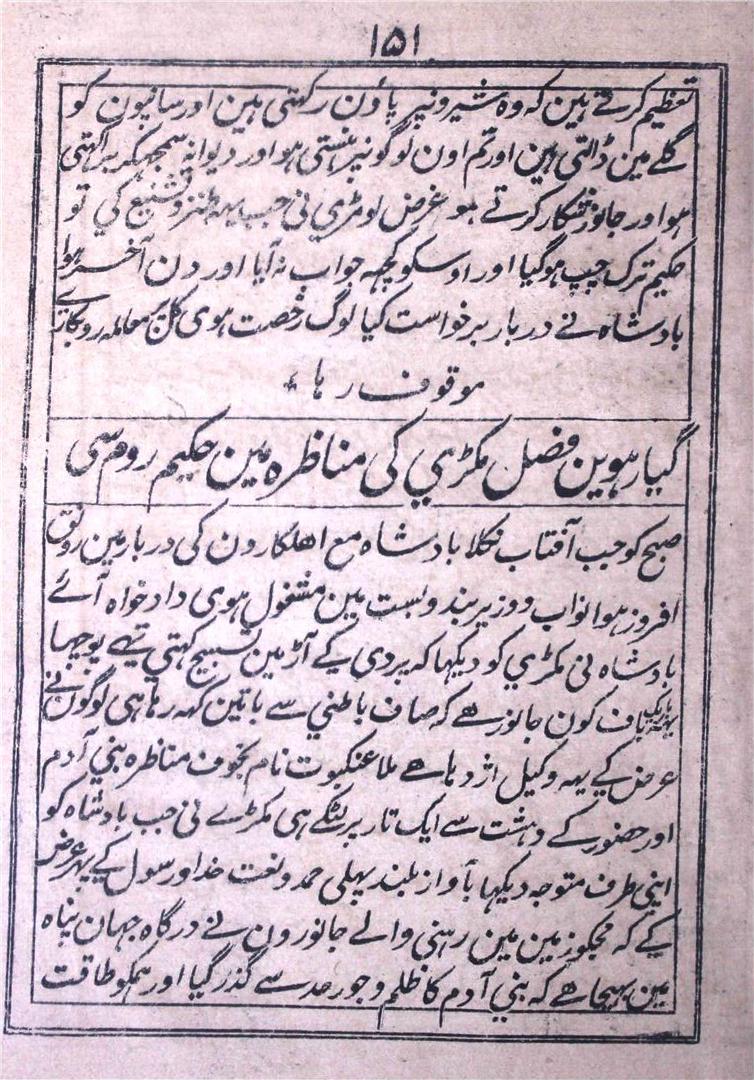 ۱۵۱
تعظیم کرتے ہین کہ وہ شیرونپر پاؤن رکہتی ہین اور سانپون کو
گلے مین ڈالتی ہین اور تم اون لوگونپر ہنستی ہو اور دیوانہ سمجہکر برا کہتی
ہو اور جانور شکار کرتے ہو غرض لومڑی نی جب یہہ طنز و تشنیع کی تو
حکیم ترک چپ ہوگیا اور اوسکو کچہہ جواب نہ آیا اور دن آخر ہوا
بادشاہ نے دربار برخواست کیا لوگ رخصت ہوی کل پر معاملہ روبکاری
موقوف رہا ۔
گیارہوین فصل مکڑی کی مناظرہ مین حکیم روم سی
صبح کو جب آفتاب نکلا بادشاہ مع اهلکارون کی دربار مین رونق
افروز ہوا نواب و وزیر بندوبست مین مشغول ہوی دادخواہ آئے
بادشاہ نی مکڑی کو دیکہا کہ پردی کے آڑ مین تسبیح کہتی ہے پوچہا
یہہ باریکباف کون جانور هے کہ صاف باطنی سے باتین کہہ رہا ہی لوگون نے
عرض کے یہہ وکیل اژدہا هے ملا عنکبوت نام بخوف مناظرہ بنی آدم
اور حضور کے دہشت سے ایک تار پر لٹکے ہی مکڑے نی جب بادشاہ کو
اپنی طرف متوجہ دیکہا بآواز بلند پہلی حمد و نعت خدا و رسول کے پہر عرض
کے کہ مجکو زمین مین رہنی والے جانورون نے درگاہ جہان پناہ
مین بہیجا هے کہ بنی آدم کا ظلم و جور حد سے گذر گیا اور ہمکو طاقت